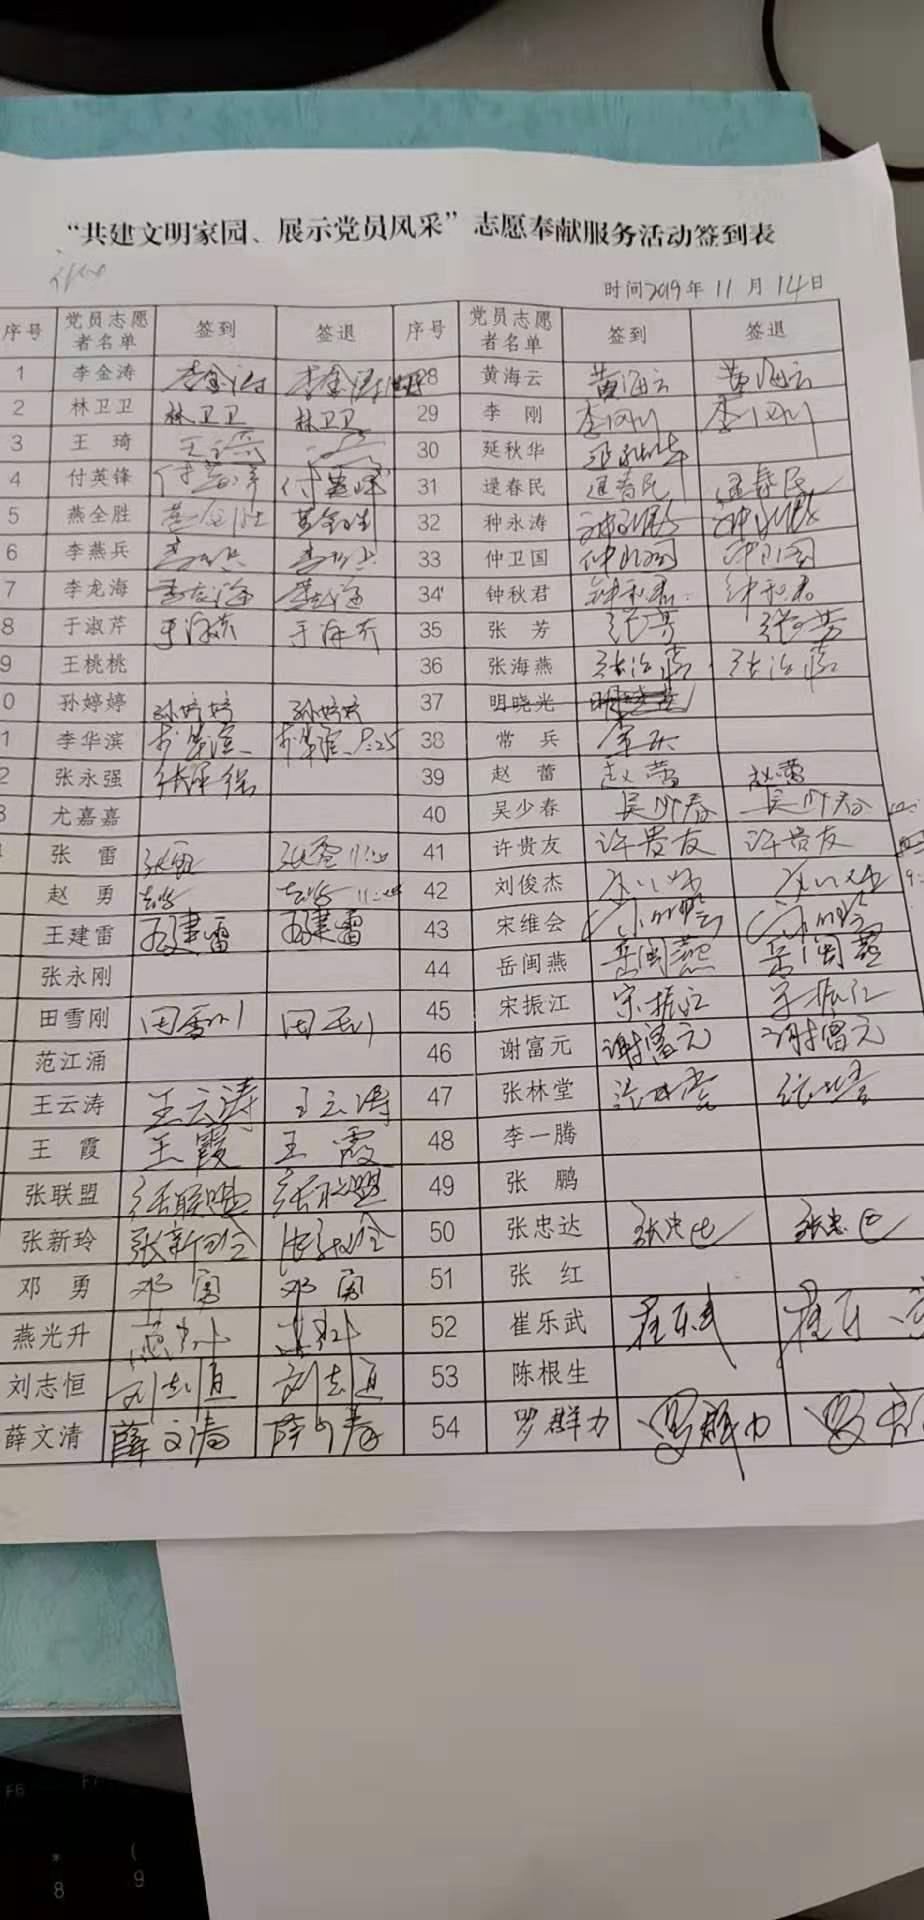 “共建文明家园、展示党员风采”志愿奉献服务活动签到表
时间2019年11月14日
序号 党员志愿者名单 签到 签退 序号 党员志愿者名单 签到 签退
1 李金涛 李金涛 李金涛 28 黄海云 黄海云 黄海云
2 林卫卫 林卫卫 林卫卫 29 李刚 李刚 李刚
3 王琦 王琦 30 延秋华 延秋华
4 付英锋 付英锋 付英锋 31 逯春民 逯春民 逯春民
5 燕全胜 燕全胜 燕全胜 32 种永涛
6 李燕兵 李燕兵 李燕兵 33 仲卫国 仲卫国 仲卫国
7 李龙海 李龙海 李龙海 34 钟秋君 钟秋君 钟秋君
8 于淑芹 于淑芹 于淑芹 35 张芳 张芳 张芳
9 王桃桃 36 张海燕 张海燕 张海燕
0 孙婷婷 孙婷婷 孙婷婷 37 明晓光
1 李华滨 李华滨 李华滨 9:25 38 常兵 常兵
2 张永强 张永强 39 赵蕾 赵蕾 赵蕾
3 尤嘉嘉 40 吴少春 吴少春 吴少春
张雷 张雷 张雷 41 许贵友 许贵友 许贵友
赵勇 赵勇 赵勇 42 刘俊杰
王建雷 王建雷 王建雷 43 宋维会 宋维会 宋维会
张永刚 44 岳闽燕 岳闽燕 岳闽燕
田雪刚 田雪刚 田雪刚 45 宋振江 宋振江 宋振江
范江涌 46 谢富元 谢富元 谢富元
王云涛 王云涛 王云涛 47 张林堂 张林堂 张林堂
王霞 王霞 王霞 48 李一腾
张联盟 张联盟 张联盟 49 张鹏
张新玲 张新玲 张新玲 50 张忠达 张忠达 张忠达
邓勇 邓勇 邓勇 51 张红
燕光升 燕光升 燕光升 52 崔乐武 崔乐武 崔乐武
刘志恒 刘志恒 刘志恒 53 陈根生
薛文清 薛文清 薛文清 54 罗群力 罗群力 罗群力
F6 F7
* (
8 9